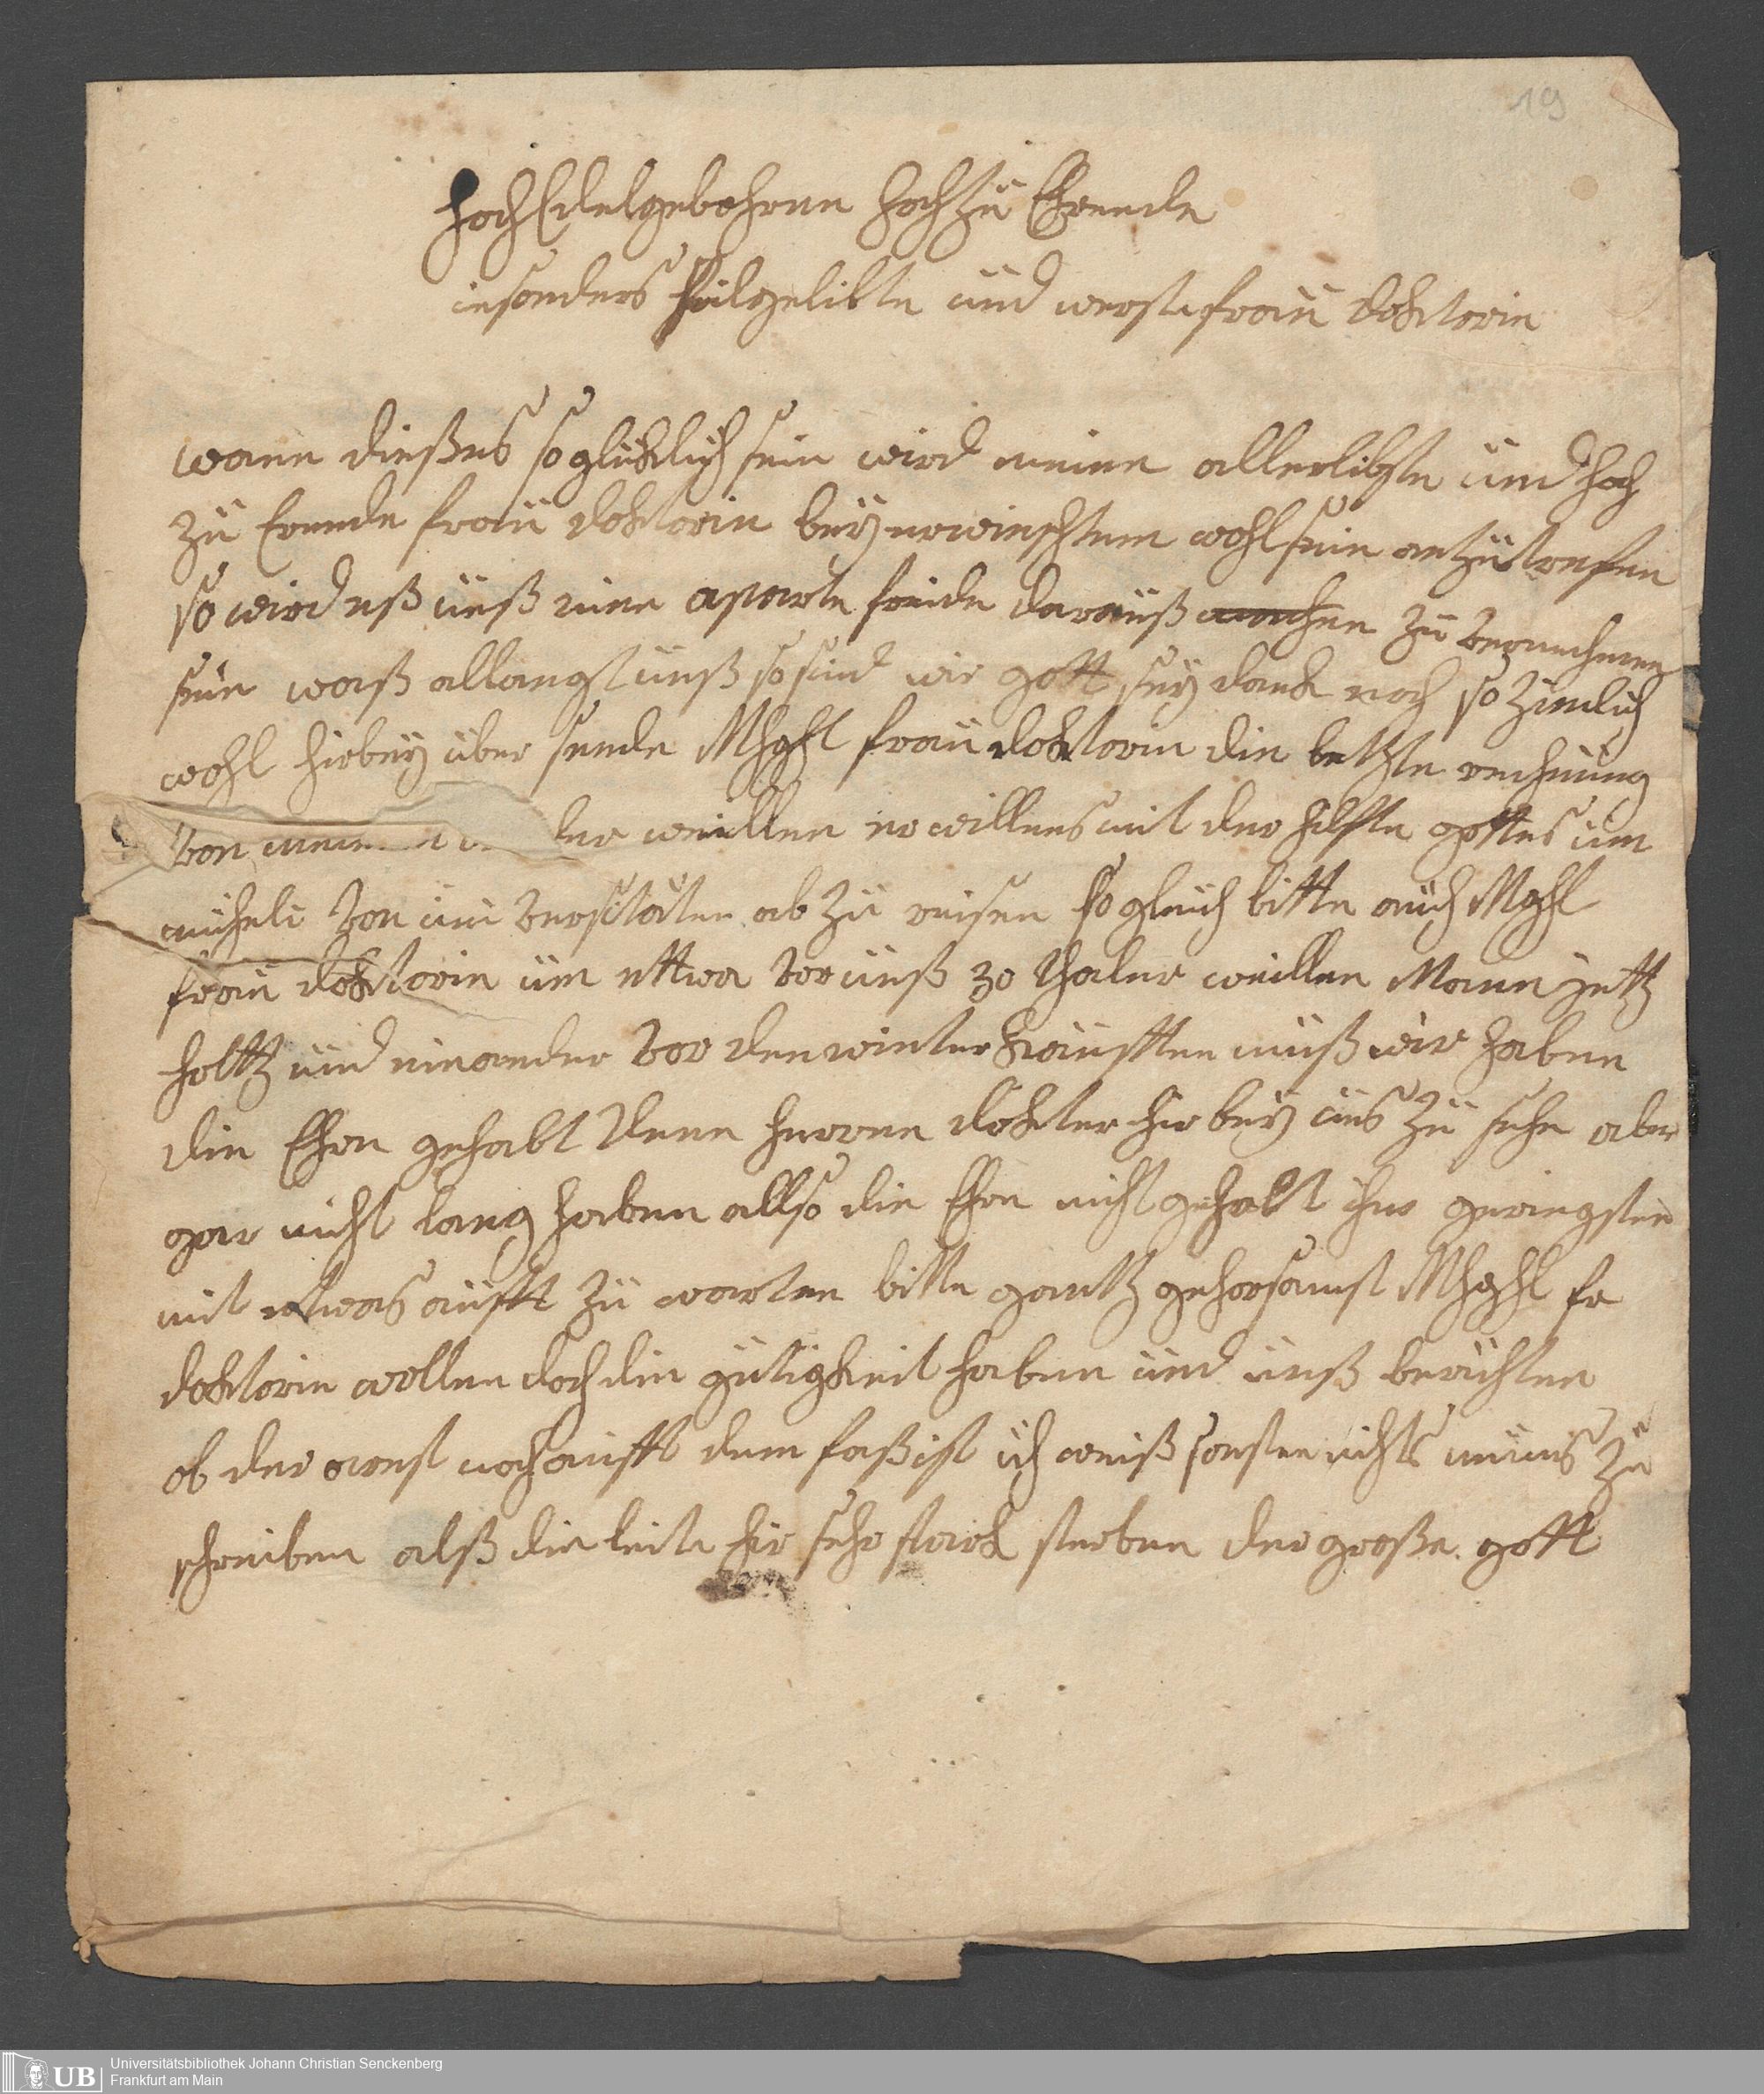 19
HochEdelgebohrne Hochzu Ehrende
insonders Fiilgelibte und werste frau doktorin
wann dießes so glicklich sein wird meine allerlibste und hoch
zu Erende frau doktorin bey erwinschtem wohlsein anzutrefen
so wird eß unß eine aparte freide darauß machen zu vernehmen
sein waß allangt unß so sind wir gott sey dank noch so zimlich
wohl hirbey über sende Mhghl frau doktorin die letzte rechnung
von meinem der weillen er willens mit der hilfte gottes um
micheli von uni versitäten ab zu reisen so gleich bitte auch Mghl
frau doktorin um ettwa vor unß 30 thaler weillen Mann jetz
holtz und einander vor den winter kauften muß wir haben
die Ehre gehabt denn herren dokter hir bey uns zu sehn aber
gar nicht lang haben allso die Ehre nicht gehabt ihm geringsten
mit etwas aufft zu warten bitte gantz gehorsamst Mhghl fr
doktorin wollen doch die gutigkeit haben und unß berichten
ob der arest noch aufft dem faß ist ich weiß sonsten nichts neues zu
schreiben alß die leite hir sehr stark sterben der große gott
UB
Universitätsbibliothek Johann Christian Senckenberg
Frankfurt am Main